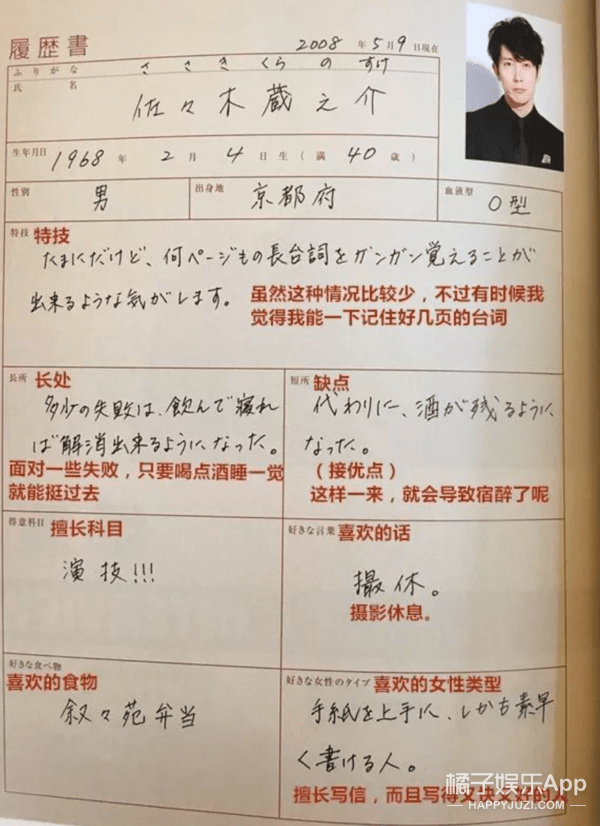 履歴書
2008年5月9日現在
ふりがな ささき くらのすけ
氏名 佐々木蔵之介
生年月日 1968年2月4日生(満40歳)
性別 男
出身地 京都府
血液型 O型
特技 特技
たまにだけど、何ページもの長台詞をガンガン覚えることが
出来るような気がします。
虽然这种情况比较少，不过有时候我
觉得我能一下记住好几页的台词
長所 长处
多少の失敗は、飲んで寝れ
ば解消出来るようになった。
面对一些失败，只要喝点酒睡一觉
就能挺过去
短所 缺点
代わりに、酒が残るように
なった。
（接优点）
这样一来，就会导致宿醉了呢
得意科目 擅长科目
演技!!!
好きな言葉 喜欢的话
撮休。
摄影休息。
好きな食べ物
喜欢的食物
叙々苑弁当
好きな女性のタイプ 喜欢的女性类型
手紙を上手に、しかも素早
く書ける人。
擅长写信，而且写得又快又好的人
橘子娱乐App
HAPPYJUZI.COM